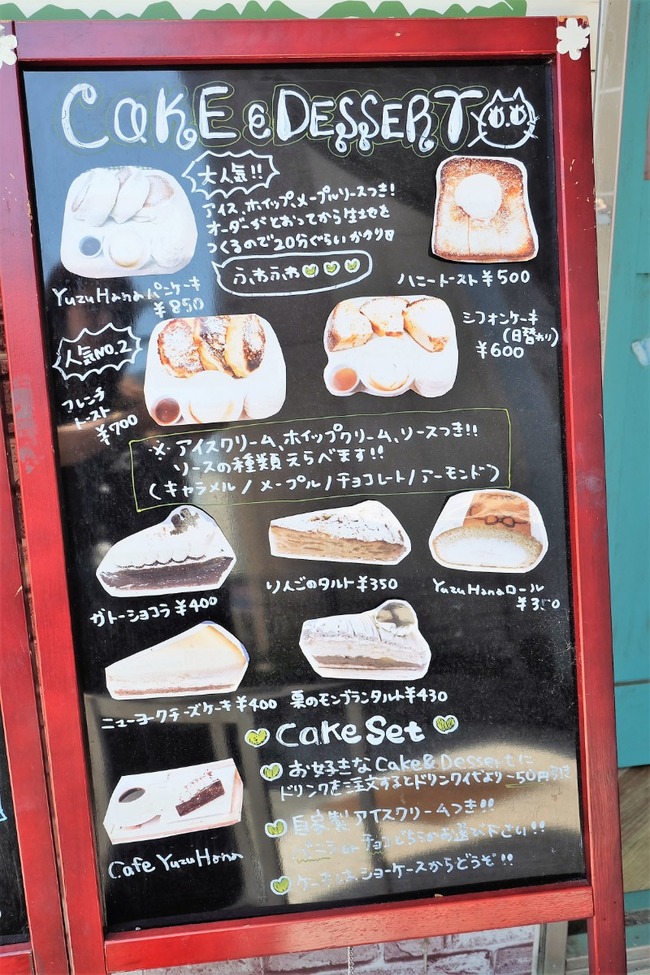 CAKE & DESSERT
大人気!!
アイス、ホイップ、メープルソースつき!
オーダーがとおってから生地を
つくるので20分ぐらいかかります
ふわふわ
YuzuHanaパンケーキ
¥850
ハニートースト¥500
人気NO.2
フレンチ
トースト
¥700
シフォンケーキ
(日替わり)
¥600
※アイスクリーム、ホイップクリーム、ソースつき!!
ソースの種類えらべます!!
(キャラメル/メープル/チョコレート/アーモンド)
ガトーショコラ¥400
りんごのタルト¥350
YuzuHanaロール
¥350
ニューヨークチーズケーキ¥400
栗のモンブランタルト¥430
Cake Set
お好きなCake&Dessertに
ドリンクを注文するとドリンク代より-50円引き
自家製アイスクリームつき!!
バニラorチョコどちらかお選び下さい!!
ケーキはショーケースからどうぞ!!
Cafe YuzuHana